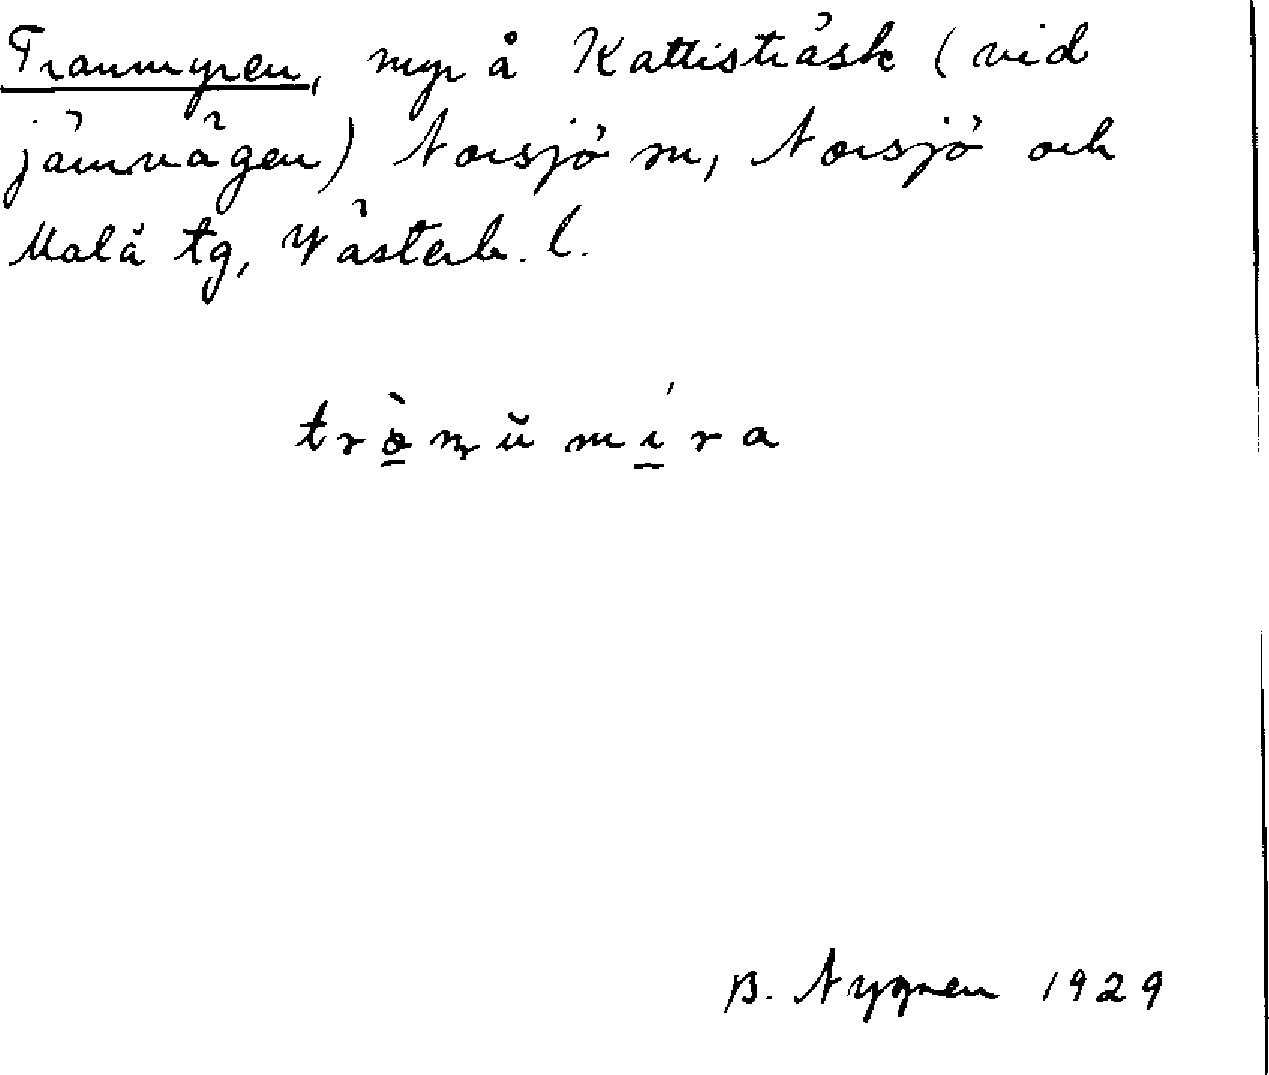 Tranmyren, myr å Kattisträsk (vid
järnvägen) Norsjö sn, Norsjö och
Malå tg, Västerb. l.
B. Nygren 1929